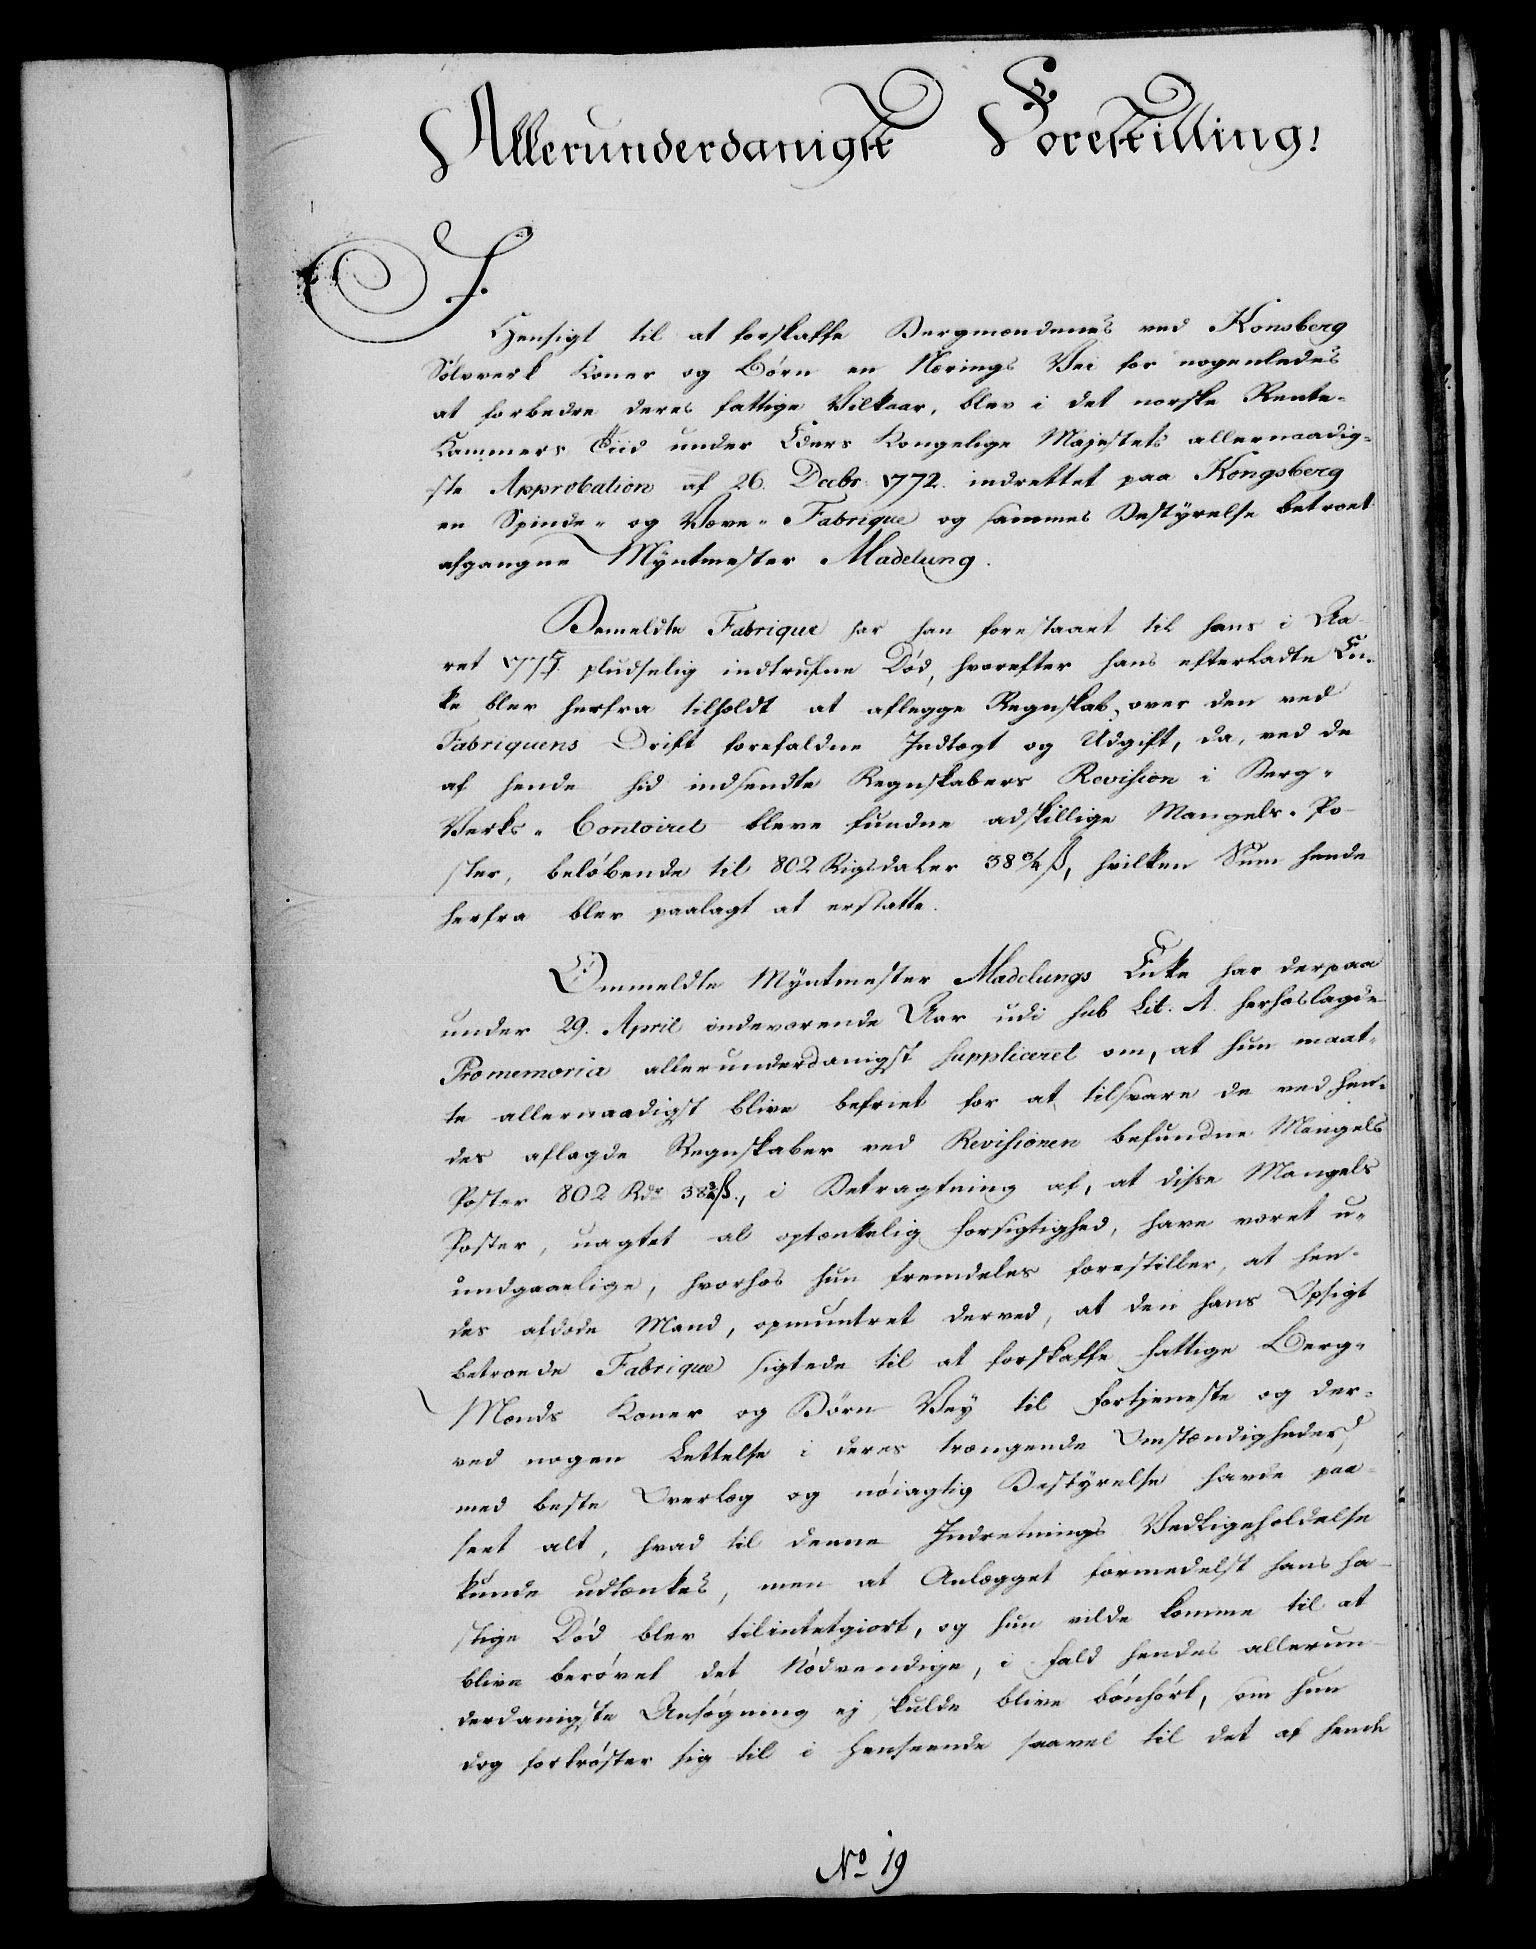 Allerunderdanigst Forestilling!
I
Hensigt til at forskaffe Bergmændenes ved Konsberg
Sølvverk Koner og Børn en Nærings Vei for nogenledes
at forbedre deres fattige Vilkaar, blev i det norske Rente-
Kammers Tiid under Eders Kongelige Majestets allernaadig-
ste Approbation af 26. Decbr. 1772. indrettet paa Kongsberg
en Spinde- og Væve-Fabrique og sammes Bestyrelse betroet
afgangne Myntmester Madelung.
Bemeldte Fabrique har han forestaaet til hans i Aa-
ret pludselig indtrufne Død, hvorefter hans efterladte En-
ke blev herfra tilholdt at aflegge Regnskab, over den ved
Fabriquens Drift forefaldne Indtægt og Udgift, da, ved de
af hende hid indsendte Regnskabers Revision i Berg-
Verks-Contoiret bleve fundne adskillige Mangels-Po-
ster, beløbende til 802 Rigsdaler 38 3/4 ß, hvilken Sum hende
herfra blev paalagt at erstatte.
Ommeldte Myntmester Madelungs Enke har derpaa
under 29. April indeværende Aar udi sub Lit. A. herhoslagde
Promemoria allerunderdanigst suppliceret om, at hun maat-
te allernaadigst blive befriet for at tilsvare de ved hen-
des aflagde Regnskaber ved Revisionen befundne Mangels
Poster 802 Rdr 38 3/4 ß., i Betragtning af, at disse Mangels
Poster, uagtet al optænkelig Forsigtighed, have været u-
undgaaelige, hvorhos hun fremdeles forestiller, at hen-
des afdøde Mand, opmuntret derved, at den hans Opsigt
betroede Fabrique sigtede til at forskaffe fattige Berg-
Mænds Koner og Børn Vey til Fortjeneste og der-
ved nogen Lettelse i deres trængende Omstændigheder,
med beste Overlæg og nøiagtig Bestyrelse havde paa-
seet alt, hvad til denne Indretnings Vedligeholdelse
kunde udtænkes, men at Anlægget formedelst hans ha-
stige Død blev tilintetgiort, og hun vilde komme til at
blive berøvet det Nødvendige, i Fald hendes allerun-
derdanigste Ansøgning ej skulde blive bønhørt, som hun
dog fortrøster sig til i Henseende saavel til det af hende
No 19